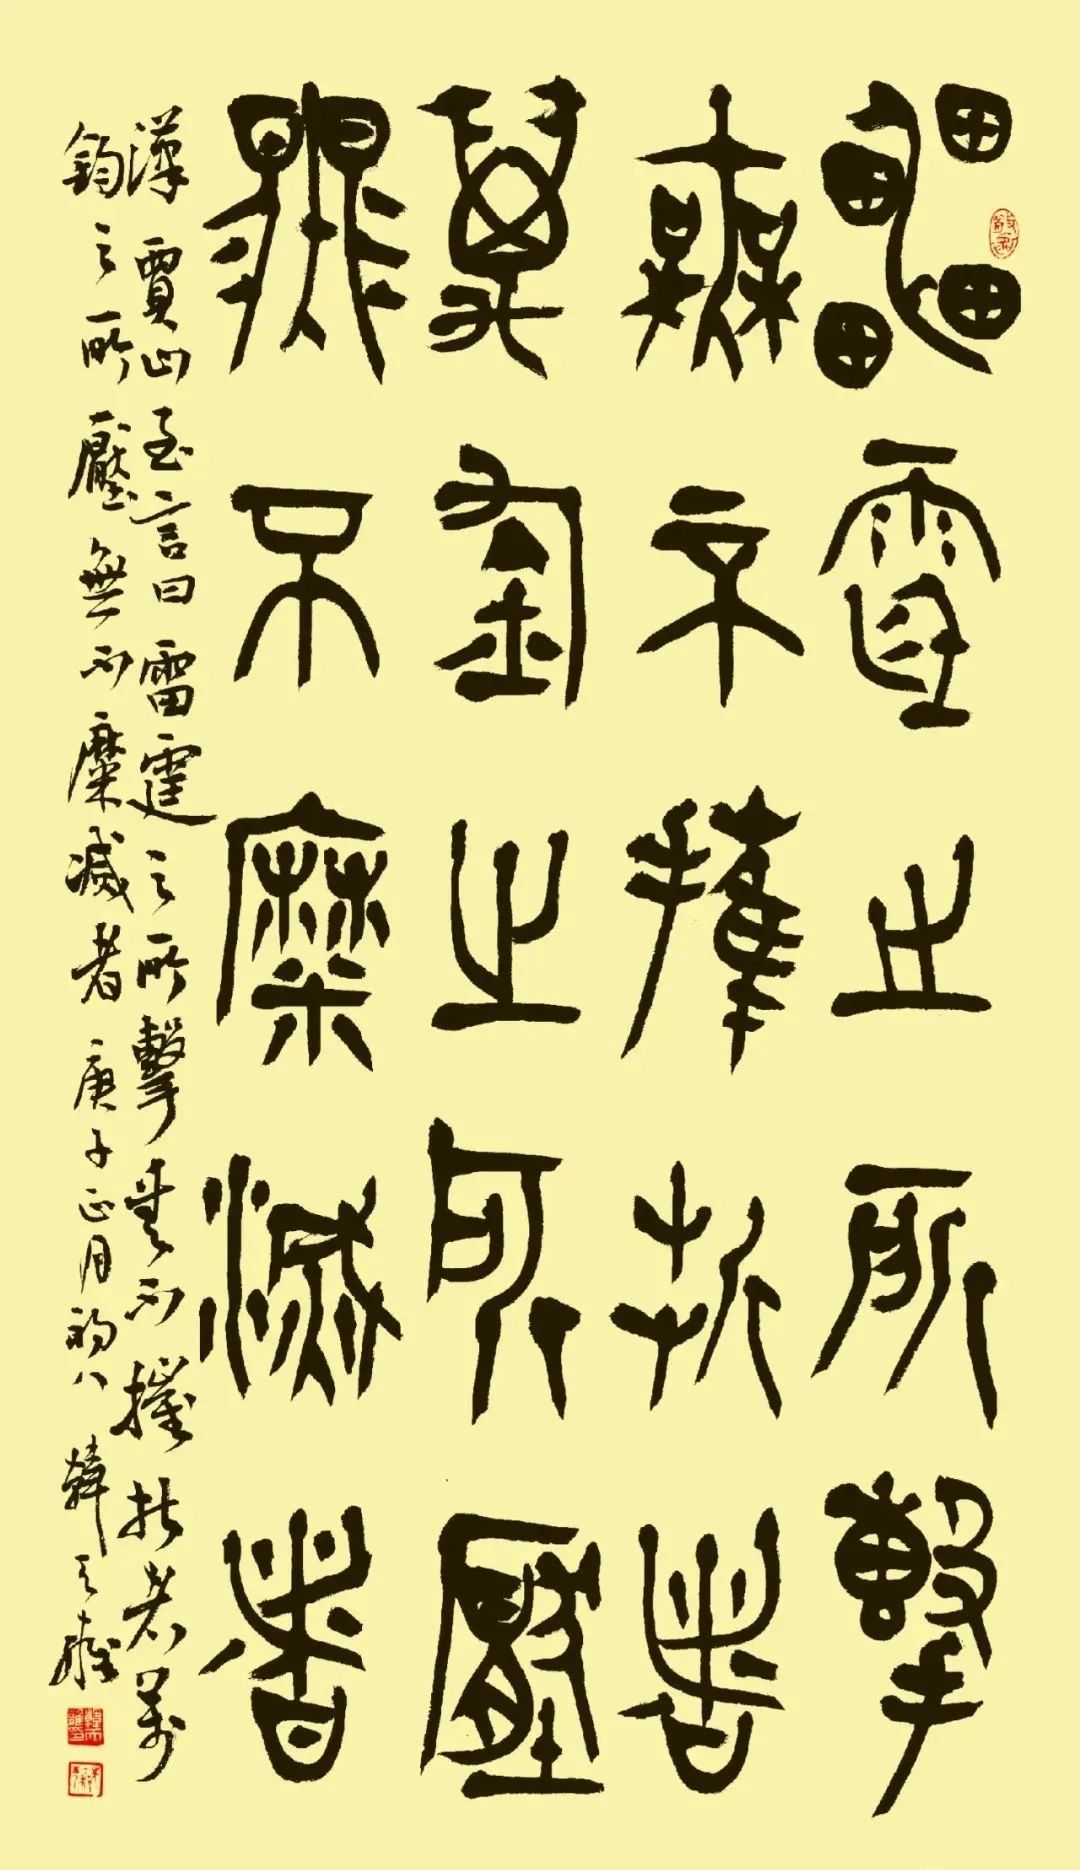 雷霆之所擊
無不摧折者
萬鈞之所壓
無不糜滅者
漢賈山至言曰雷霆之所擊無不摧折者萬
鈞之所壓無不糜滅者庚子正月初八韓天雍